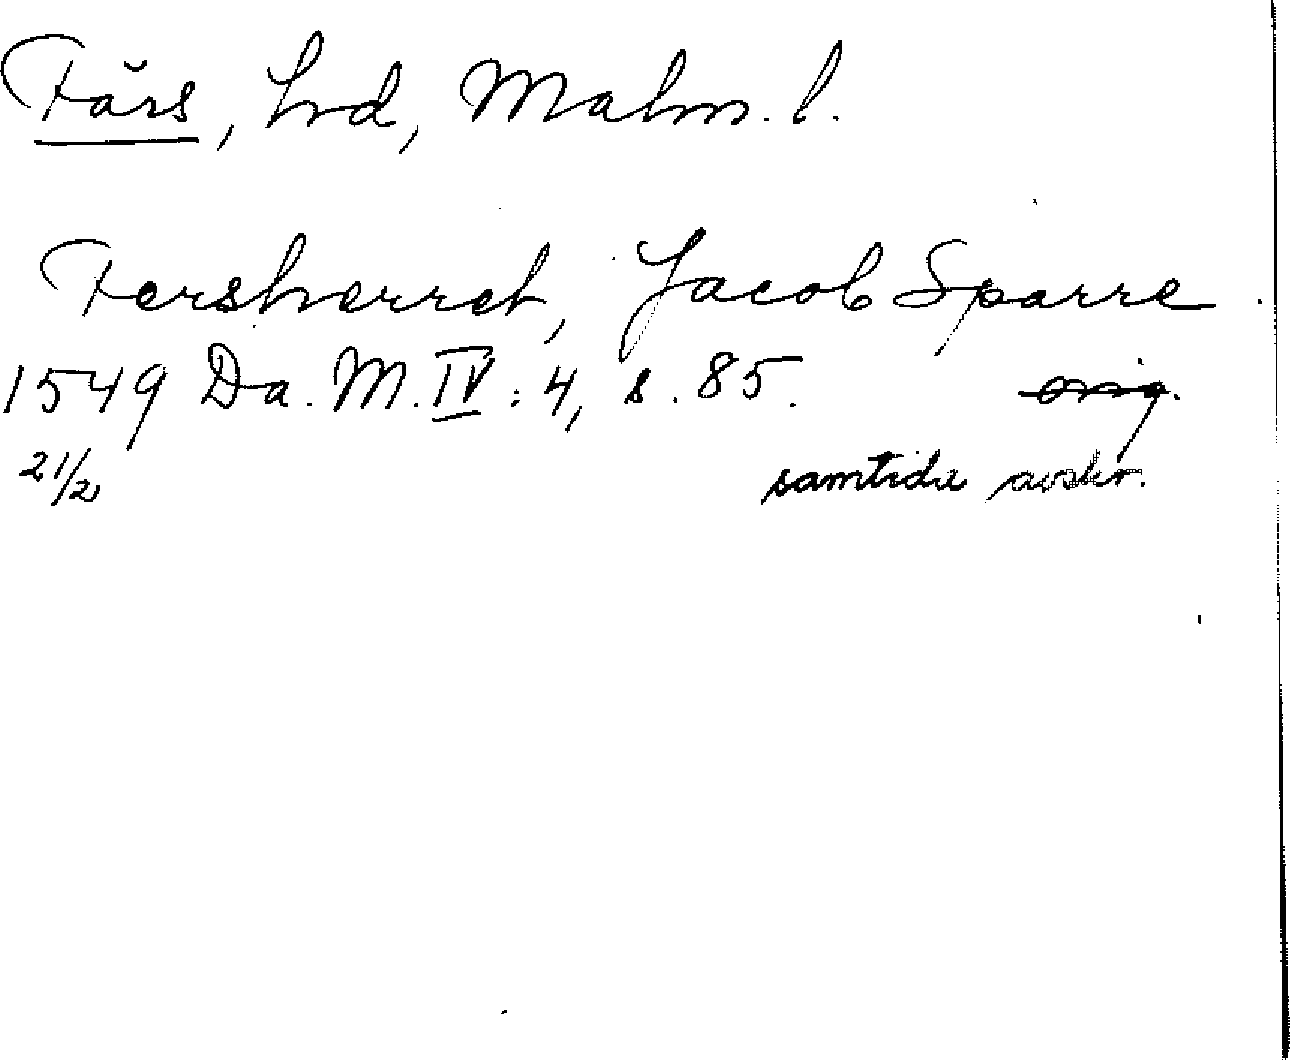 Färs, hrd, Malm. l.
Fersherret, Jacob Sparre
1549 Da. M. IV: 4, s. 85. orig.
21/2 samtida avskr.